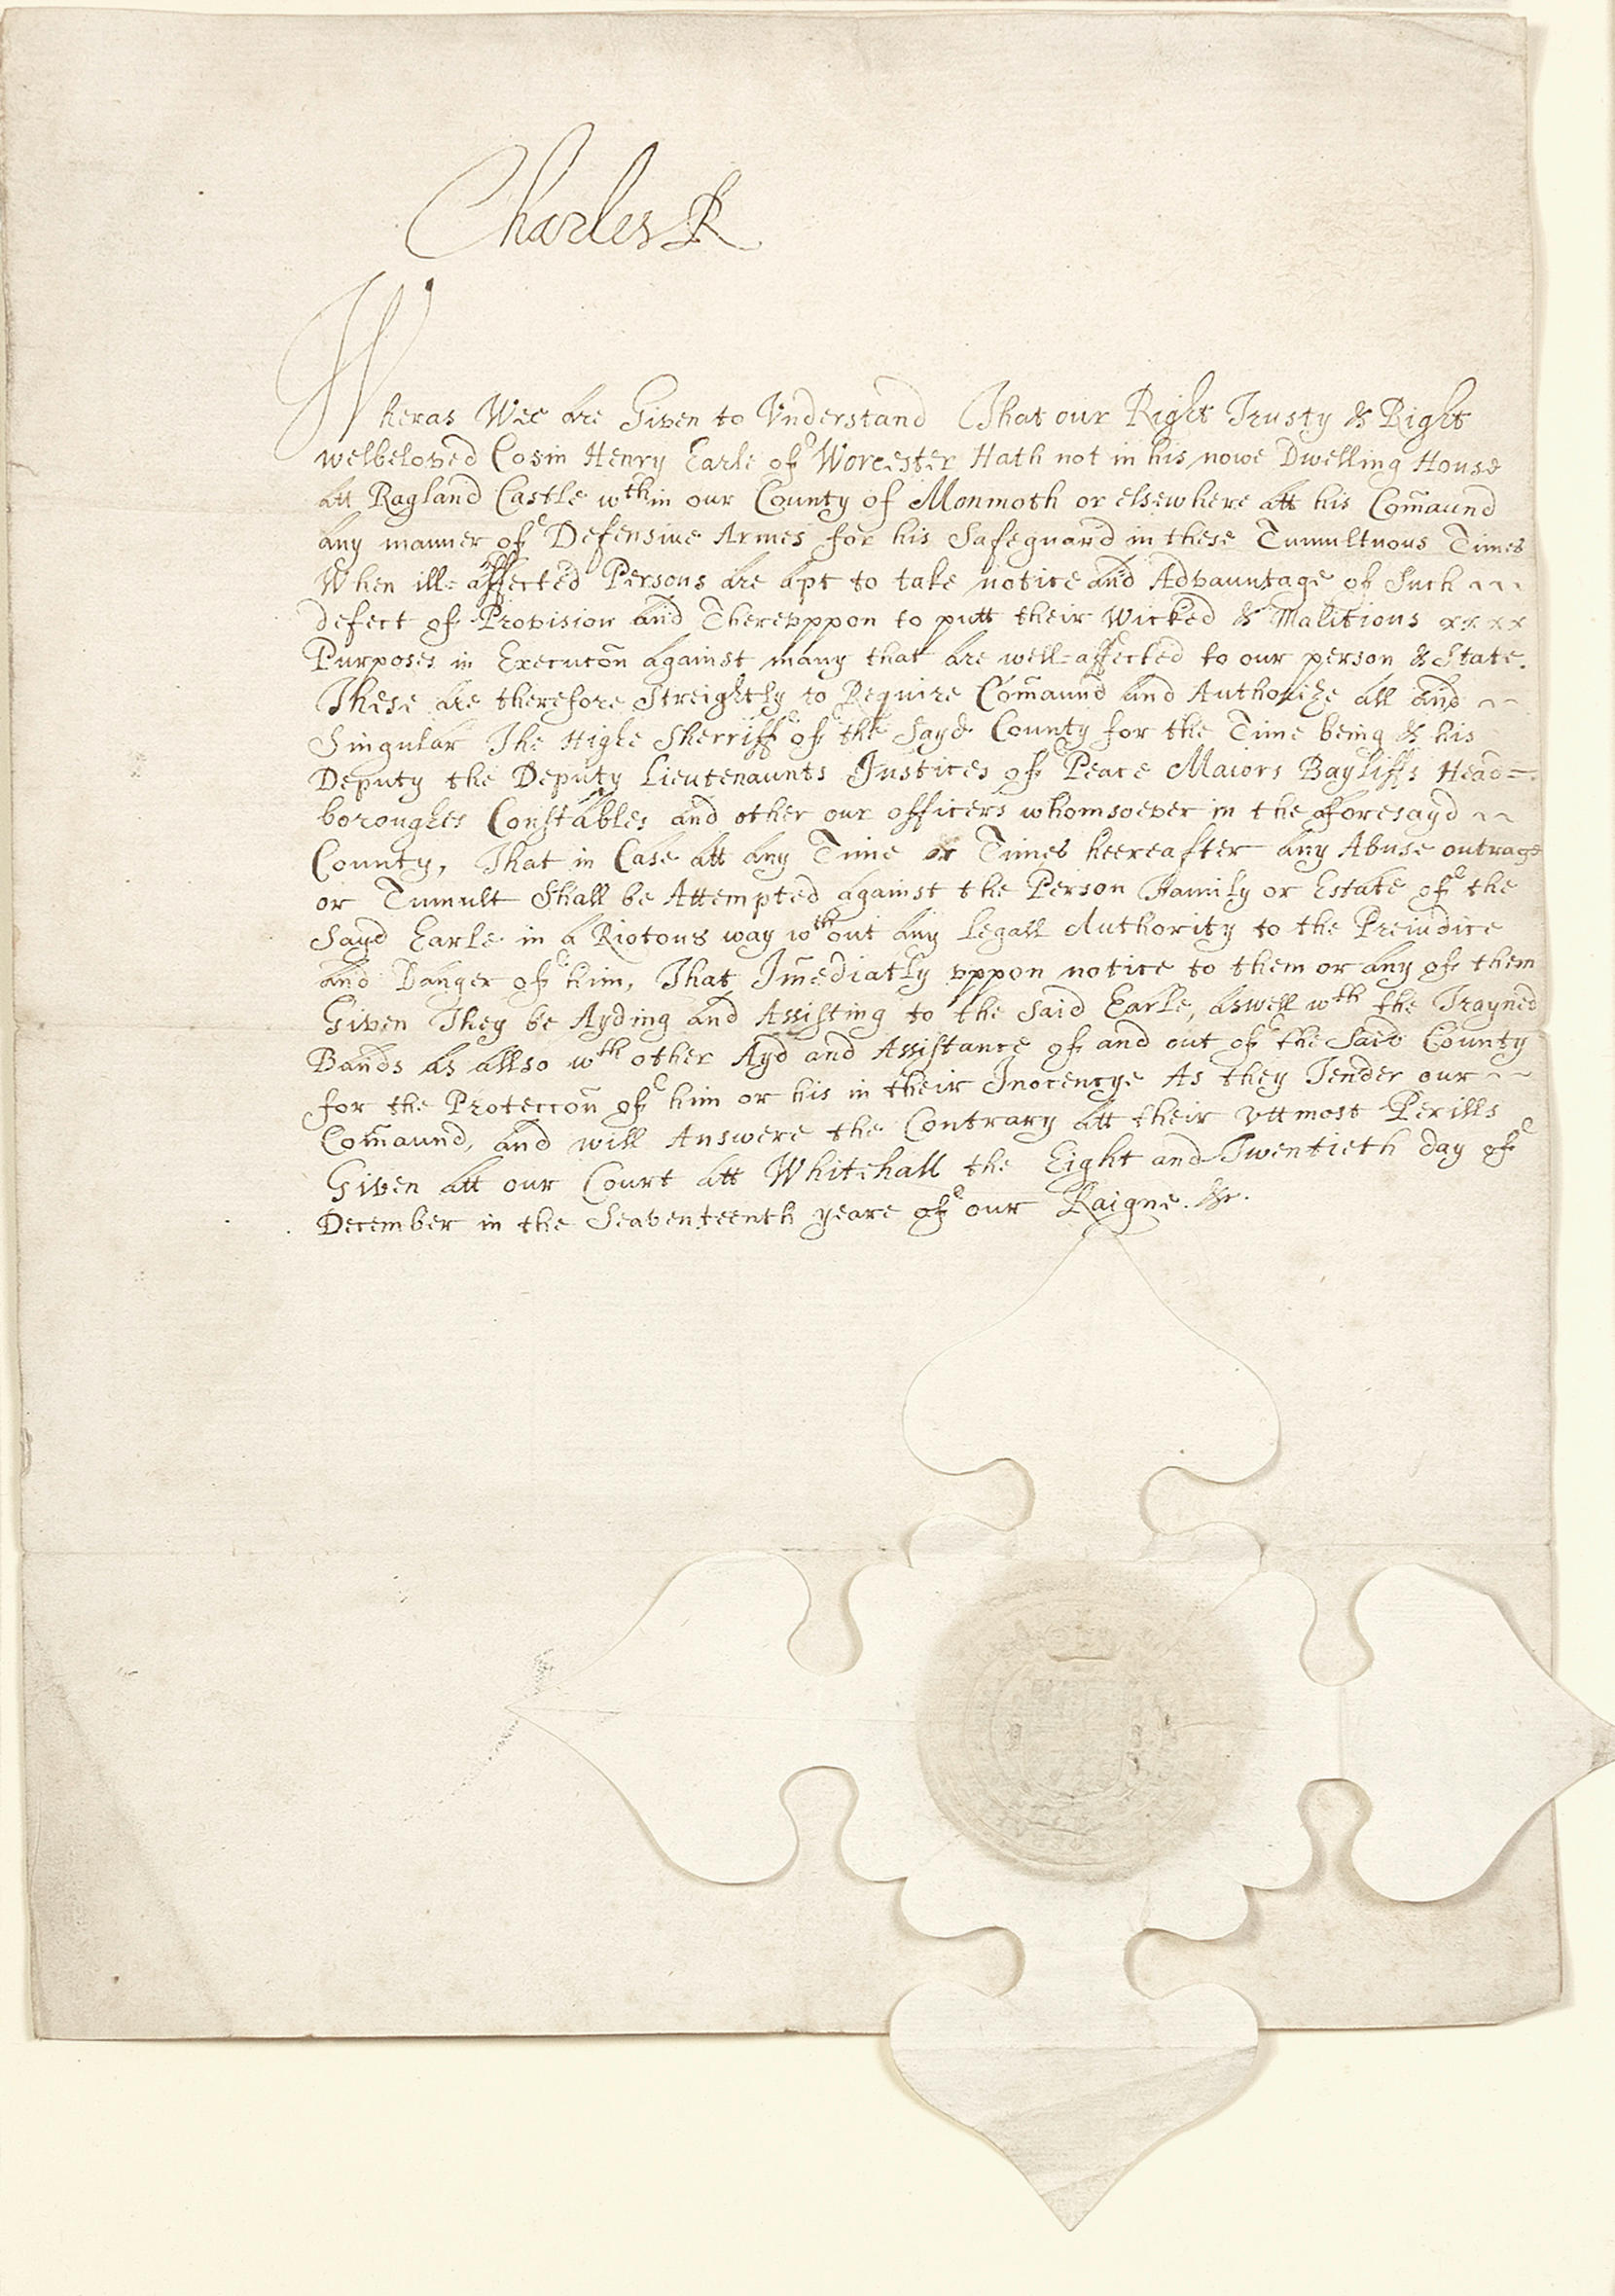 Charles R
Wheras Wee Are Given to Vnderstand That our Right Trusty & Right
welbeloved Cosin Henry Earle of Worcester Hath not in his nowe Dwelling House
att Ragland Castle wthin our County of Monmoth or elsewhere att his Com̃aund
Any manner of Defensiue Armes for his Safeguard in these Tumultuous Times
When ill=affected Persons Are Apt to take notice And Advauntage of Such
defect of Provision And Therevppon to putt their Wicked & Malitious
Purposes in Execucõn Against many that Are well=affected to our person & State.
These Are therefore Streightly to Require Com̃aund And Authorize All And
Singular The Highe Sherriff of the Sayd County for the Time being & his
Deputy the Deputy Lieutenaunts Justices of Peace Maiors Bayliffs Head=
boroughes Constables and other our officers whomsoever in the afforesayd
County, That in Case Att Any Time or Times heereafter Any Abuse outrage
or Tumult Shall be Attempted Against the Person Family or Estate of the
Sayd Earle in A Riotous way wthout Any Legall Authority to the Preiudice
And Danger of him, That Im̃ediatly vppon notice to them or Any of them
Given They be Ayding And Assisting to the Said Earle, Aswell wth the Trayned
Bands As Allso wth other Ayd and Assistance of and out of the Said County
for the Proteccõn of him or his in their Inocencye As they Tender our
Com̃aund, and will Answere the Contrary Att their Vttmost Perills
Given Att our Court Att Whitehall the Eight and Twentieth day of
December in the Seaventeenth yeare of our Raigne. &c.